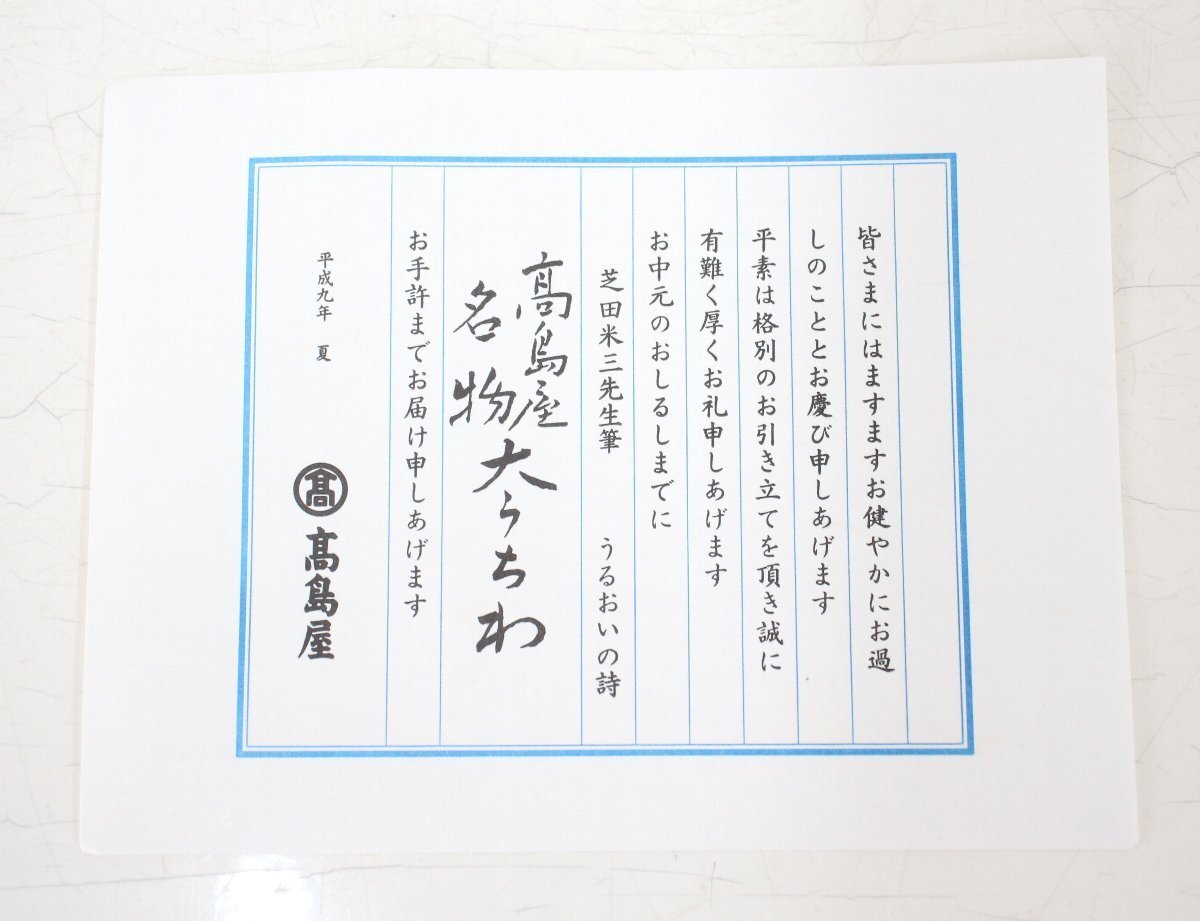 皆さまにはますますお健やかにお過
しのこととお慶び申しあげます
平素は格別のお引き立てを頂き誠に
有難く厚くお礼申しあげます
お中元のおしるしまでに
芝田米三先生筆　うるおいの詩
髙島屋
名物大うちわ
お手許までお届け申しあげます
平成九年　夏
髙 髙島屋